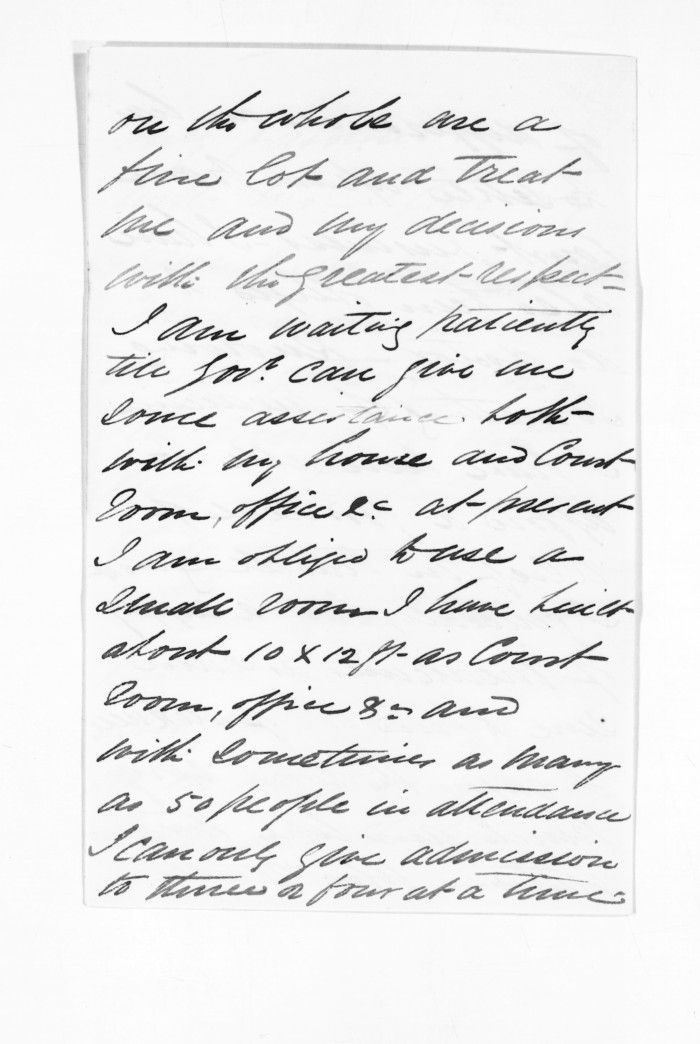 on the whole are a
fine lot and treat
me and my decisions
with the greatest respect -
I am waiting patiently
till Govt. can give me
some assistance both
with my house and Court
room, office &c at present
I am obliged to use a
small room I have built
about 10 x 12 ft as Court
room, office &c and
with sometimes as many
as 50 people in attendance
I can only give admission
to three or four at a time.